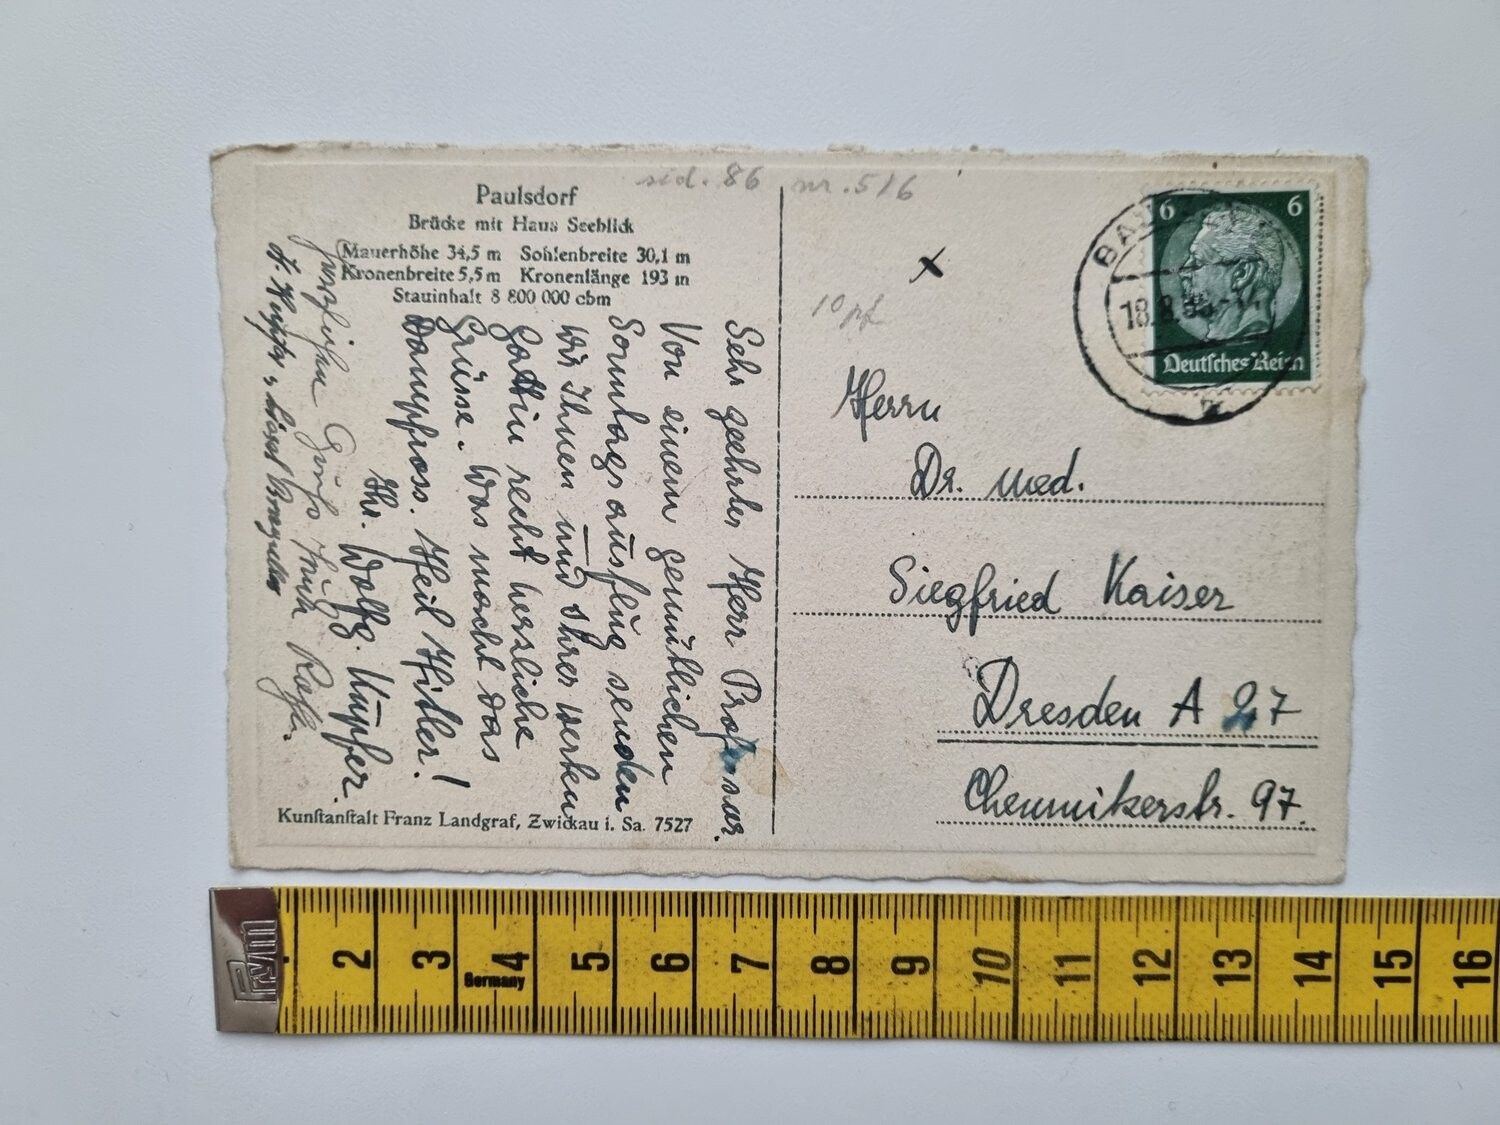 sid. 86 nr. 516
Paulsdorf
Brücke mit Haus Seeblick
Mauerhöhe 34,5 m Sohlenbreite 30,1 m
Kronenbreite 5,5 m Kronenlänge 193 m
Stauinhalt 8 800 000 cbm
Sehr geehrter Herr Professor.
Von einem gemütlichen
Sonntagsausflug senden
wir Ihnen und Ihrer werten
Gattin recht herzliche
Grüsse. Was macht das
Dampfross. Heil Hitler!
Ihr. Wolfg. Küpfer.
Kunstanstalt Franz Landgraf, Zwickau i. Sa. 7527
x
10 pf
6 6
Deutsches Reich
18.8.
Herrn
Dr. med.
Siegfried Kaiser
Dresden A 27
Chemnitzerstr. 97.
Prym
2 3 4 5 6 7 8 9 10 11 12 13 14 15 16
Germany